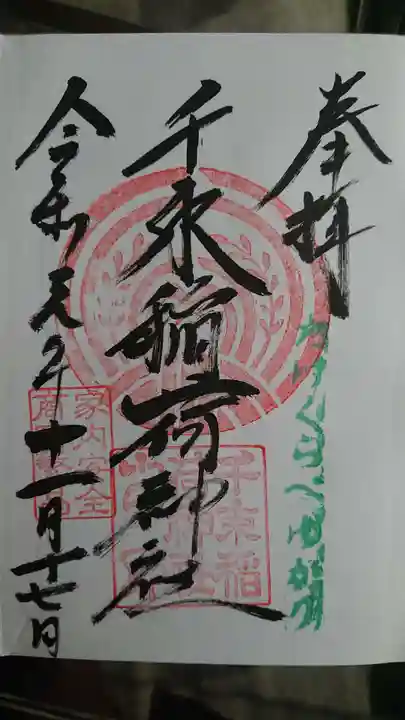 奉拝
たけくらべゆかり
千束稲荷神社
千束稲
荷神社
令和元年十一月十七日
家内安全
商売繁昌